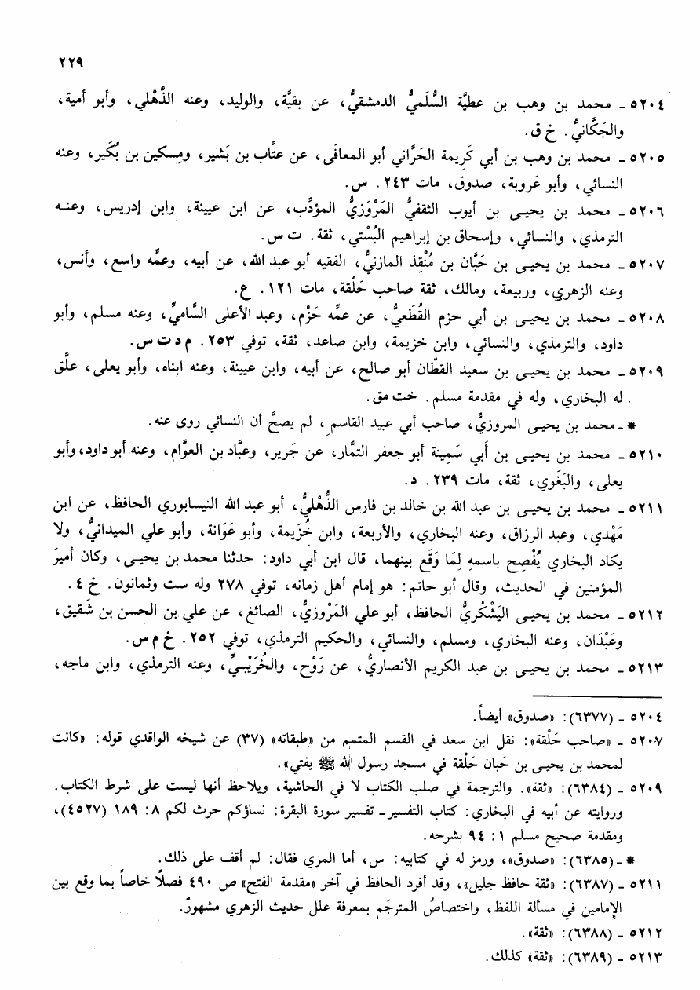 ٢٢٩
٥٢٠٤ ـ محمد بن وهب بن عطيَّة السُّلَميُّ الدمشقيُّ، عن بقيَّة، والوليد، وعنه الذُّهْلي، وأبو أمية،
والحَكَّانيُّ. خ ق.
٥٢٠٥ ـ محمد بن وهب بن أبي كَرِيمة الحَرَّاني أبو المعافى، عن عتَّاب بن بَشير، ومِسكين بن بُكَير، وعنه
النسائي، وأبو عَروبة، صدوق، مات ٢٤٣. س.
٥٢٠٦ ـ محمد بن يحيى بن أيوب الثقفيُّ المَرْوَزيُّ المؤدِّب، عن ابن عيينة، وابن إدريس، وعنه
الترمذي، والنسائي، وإسحاق بن إبراهيم البُسْتي، ثقة. ت س.
٥٢٠٧ ـ محمد بن يحيى بن حَبَّان بن مُنْقِذ المازنيُّ، الفقيه أبو عبد الله، عن أبيه، وعمِّه واسع، وأنس،
وعنه الزهري، وربيعة، ومالك، ثقة صاحب حَلْقة، مات ١٢١. ع.
٥٢٠٨ ـ محمد بن يحيى بن أبي حزم القُطَعيُّ، عن عمِّه حَزْم، وعبد الأعلى السَّاميِّ، وعنه مسلم، وأبو
داود، والترمذي، والنسائي، وابن خزيمة، وابن صاعد، ثقة، توفي ٢٥٣. م د ت س.
٥٢٠٩ ـ محمد بن يحيى بن سعيد القطّان أبو صالح، عن أبيه، وابن عيينة، وعنه ابناه، وأبو يعلى، علَّق
له البخاري، وله في مقدمة مسلم. خت مق.
* ـ محمد بن يحيى المروزيُّ، صاحب أبي عبيد القاسم، لم يصحَّ أن النسائي روى عنه.
٥٢١٠ ـ محمد بن يحيى بن أَبي سَمِينة أبو جعفر التمَّار، عن جَرير، وعبَّاد بن العوَّام، وعنه أبو داود، وأبو
يعلى، والبَغَوي، ثقة، مات ٢٣٩. د.
٥٢١١ ـ محمد بن يحيى بن عبد الله بن خالد بن فارس الذُّهْليُّ، أبو عبد الله النيسابوري الحافظ، عن ابن
مَهْدي، وعبد الرزاق، وعنه البخاري، والأربعة، وابن خُزيمة، وأبو عَوَانة، وأبو علي الميدانيُّ، ولا
يكاد البخاري يُفْصِح باسمه لِمَا وَقَع بينهما، قال ابن أبي داود: حدثنا محمد بن يحيى، وكان أميرَ
المؤمنين في الحديث، وقال أبو حاتم: هو إمام أهل زمانه، توفي ٢٧٨ وله ست وثمانون. خ ٤.
٥٢١٢ ـ محمد بن يحيى اليَشْكريُّ الحافظ، أبو علي المَرْوزيُّ، الصائغ، عن علي بن الحسن بن شَقيق،
وعَبْدَان، وعنه البخاري، ومسلم، والنسائي، والحكيم الترمذي، توفي ٢٥٢. خ م س.
٥٢١٣ ـ محمد بن يحيى بن عبد الكريم الأنصاريُّ، عن رَوْح، والخُرَيْبيِّ، وعنه الترمذي، وابن ماجه،
٥٢٠٤ ـ (٦٣٧٧): «صدوق» أيضاً.
٥٢٠٧ ـ «صاحب حَلْقة»: نقل ابن سعد في القسم المتمم من «طبقاته» (٣٧) عن شيخه الواقدي قوله: «كانت
لمحمد بن يحيى بن حَبان حَلْقة في مسجد رسول الله ﷺ يفتي».
٥٢٠٩ ـ (٦٣٨٤): «ثقة». والترجمة في صلب الكتاب لا في الحاشية، ويلاحظ أنها ليست على شرط الكتاب.
وروايته عن أبيه في البخاري: كتاب التفسير ـ تفسير سورة البقرة: نساؤكم حرث لكم ٨: ١٨٩ (٤٥٢٧)،
ومقدمة صحيح مسلم ١: ٩٤ بشرحه.
* ـ (٦٣٨٥): «صدوق»، ورمز له في كتابيه: س، أما المزي فقال: لم أقف على ذلك.
٥٢١١ ـ (٦٣٨٧): «ثقة حافظ جليل»، وقد أفرد الحافظ في آخر «مقدمة الفتح» ص ٤٩٠ فصلاً خاصاً بما وقع بين
الإمامين في مسألة اللفظ، واختصاصُ المترجَم بمعرفة علل حديث الزهري مشهورٌ.
٥٢١٢ ـ (٦٣٨٨): «ثقة».
٥٢١٣ ـ (٦٣٨٩): «ثقة» كذلك.